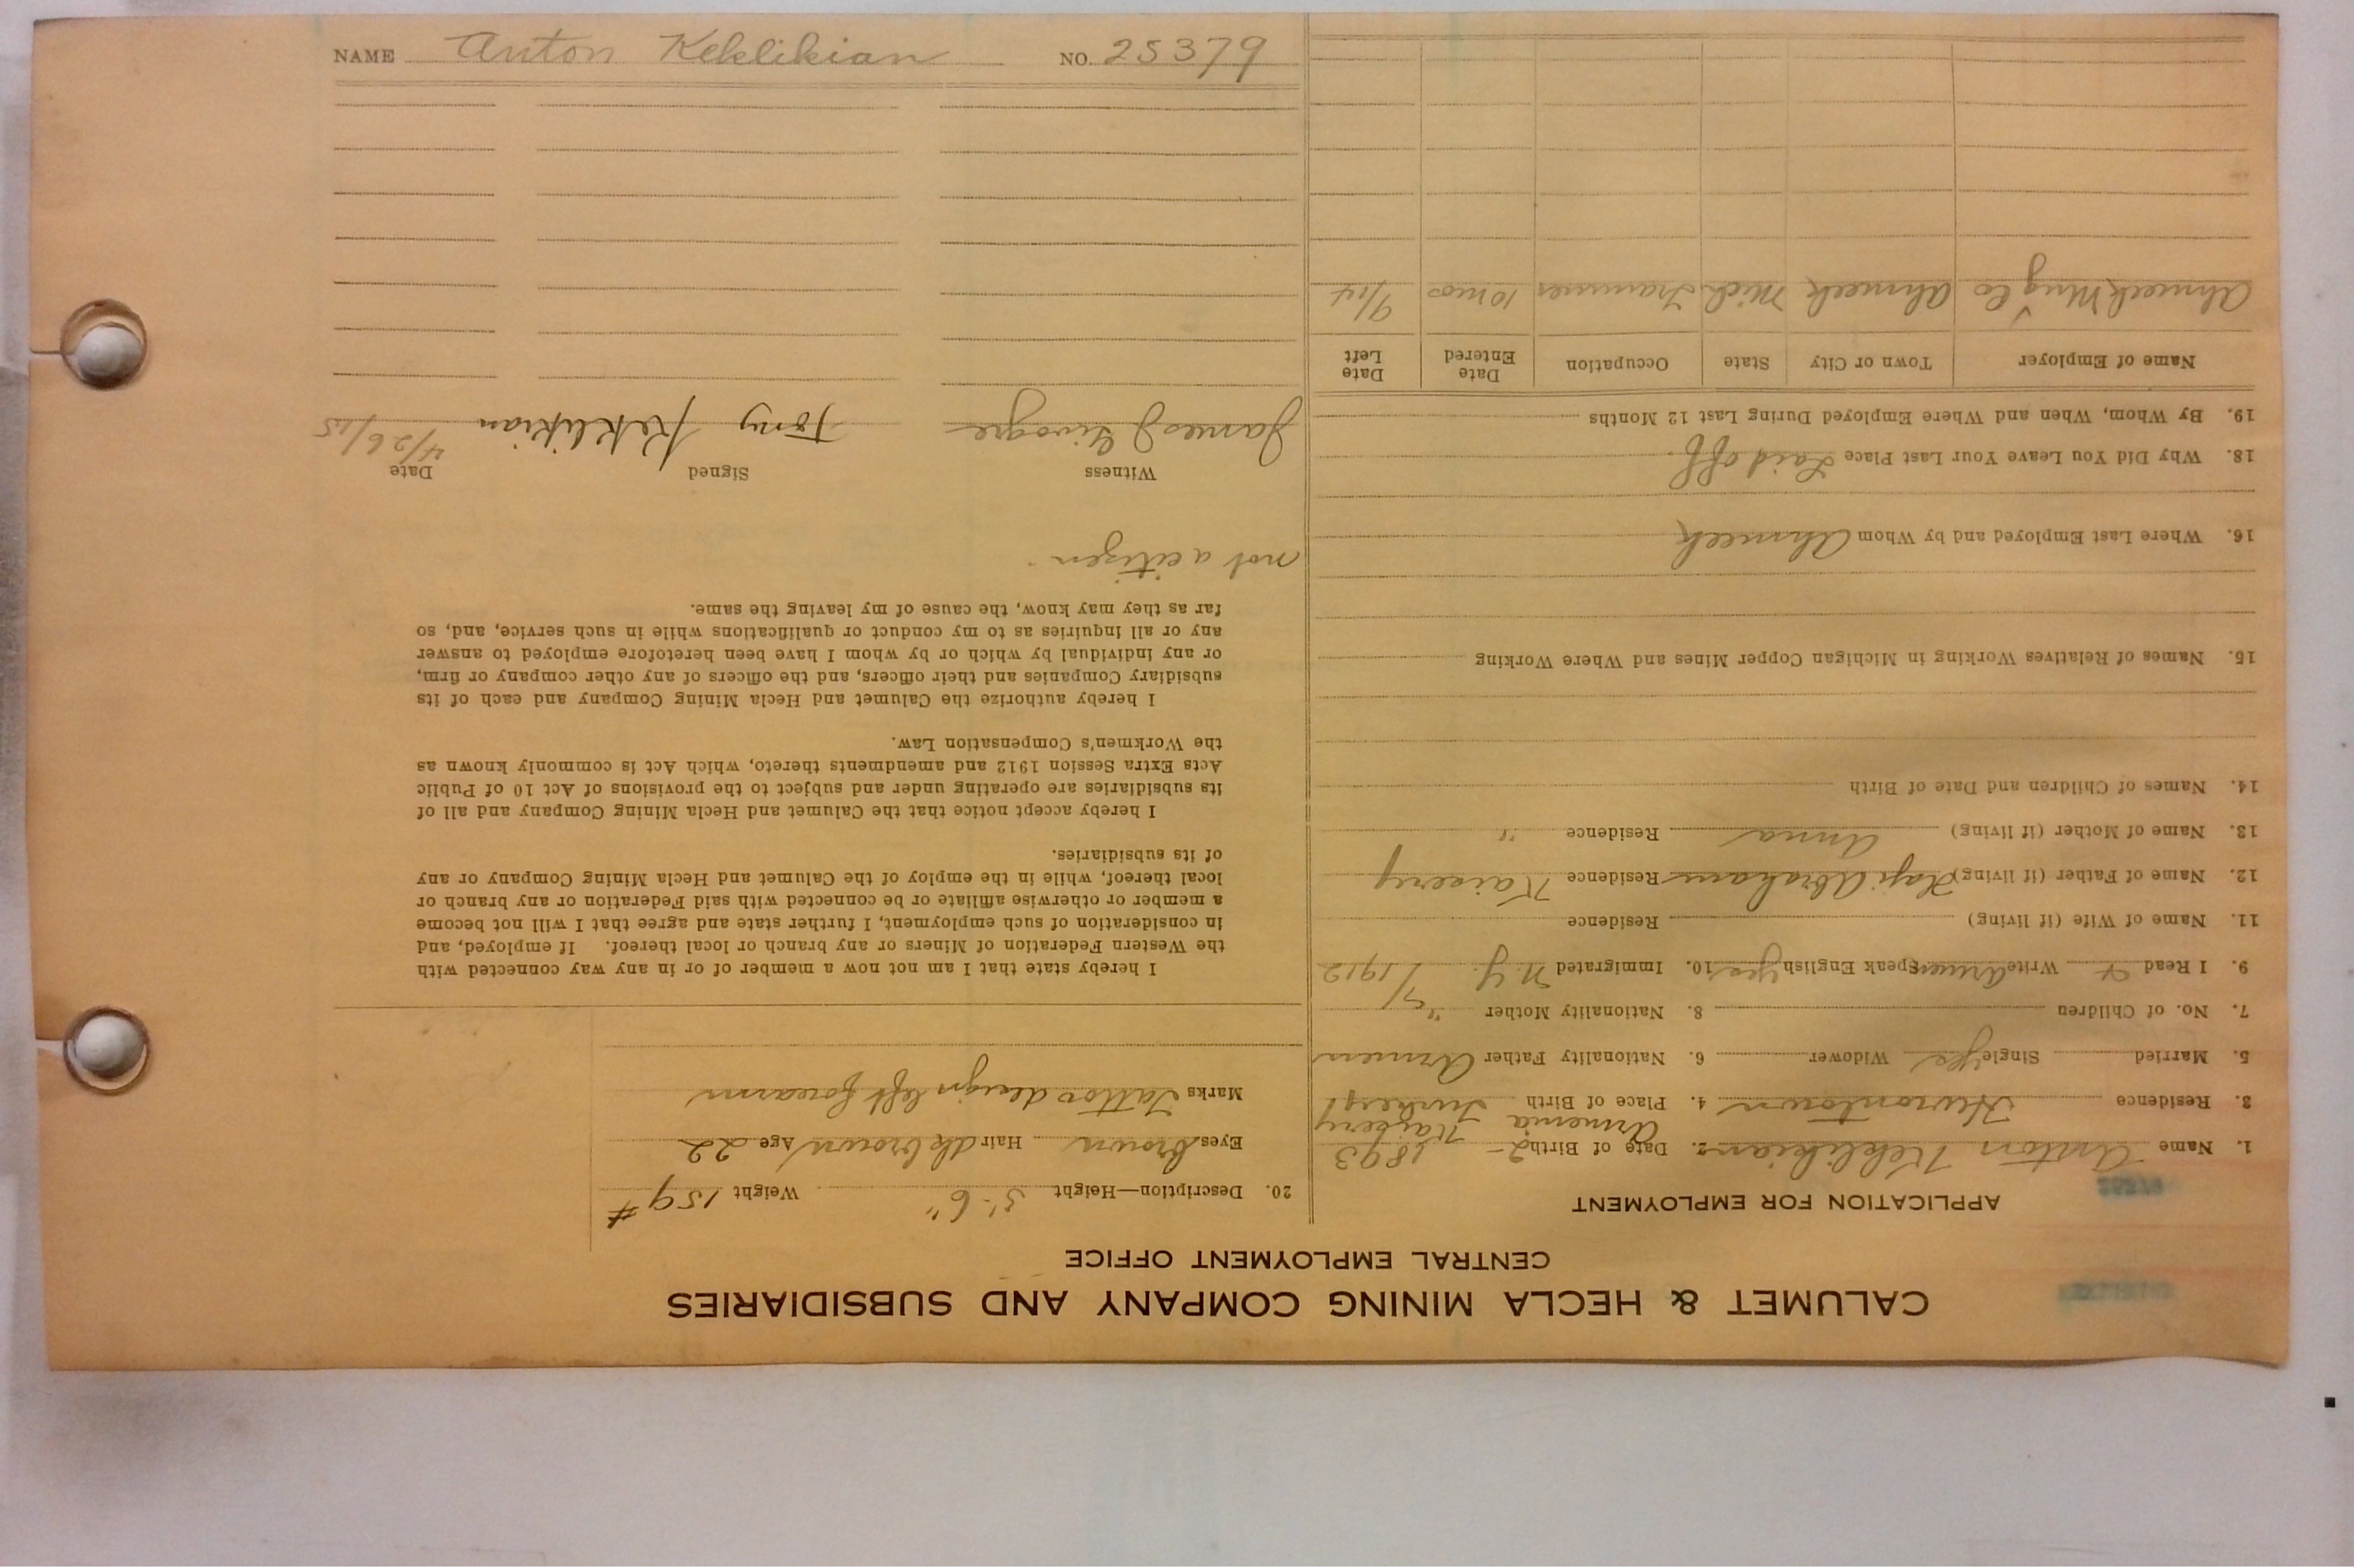 NAME Anton Keklikian NO. 25379
CALUMET & HECLA MINING COMPANY AND SUBSIDIARIES
CENTRAL EMPLOYMENT OFFICE
APPLICATION FOR EMPLOYMENT
1. Name Anton Keklikian 2. Date of Birth 2- 1893
Armenia Kaisery
3. Residence Hurontown 4. Place of Birth Turkey
5. Married Single yes Widower 6. Nationality Father Armen
7. No. of Children 8. Nationality Mother "
9. I Read + Write Armen Speak English yes 10. Immigrated N.Y. 7/1912
11. Name of Wife (if living) Residence
12. Name of Father (if living) Haji Abraham Residence Kaisery
13. Name of Mother (if living) Anna Residence "
14. Names of Children and Date of Birth
15. Names of Relatives Working in Michigan Copper Mines and Where Working
16. Where Last Employed and by Whom Ahmeek
18. Why Did You Leave Your Last Place Laid off.
19. By Whom, When and Where Employed During Last 12 Months
Name of Employer Town or City State Occupation Date Entered Date Left
Ahmeek Mng Co Ahmeek Mich Trammer 10 mos 9/14
20. Description—Height 5'-6" Weight 159#
Eyes brown Hair dk brown Age 22
Marks Tattoo design left forearm
I hereby state that I am not now a member of or in any way connected with
the Western Federation of Miners or any branch or local thereof. If employed, and
in consideration of such employment, I further state and agree that I will not become
a member or otherwise affiliate or be connected with said Federation or any branch or
local thereof, while in the employ of the Calumet and Hecla Mining Company or any
of its subsidiaries.
I hereby accept notice that the Calumet and Hecla Mining Company and all of
its subsidiaries are operating under and subject to the provisions of Act 10 of Public
Acts Extra Session 1912 and amendments thereto, which Act is commonly known as
the Workmen's Compensation Law.
I hereby authorize the Calumet and Hecla Mining Company and each of its
subsidiary Companies and their officers, and the officers of any other company or firm,
or any individual by which or by whom I have been heretofore employed to answer
any or all inquiries as to my conduct or qualifications while in such service, and, so
far as they may know, the cause of my leaving the same.
not a citizen
Witness Signed Date
James J Tony Keklikian 4/26/15